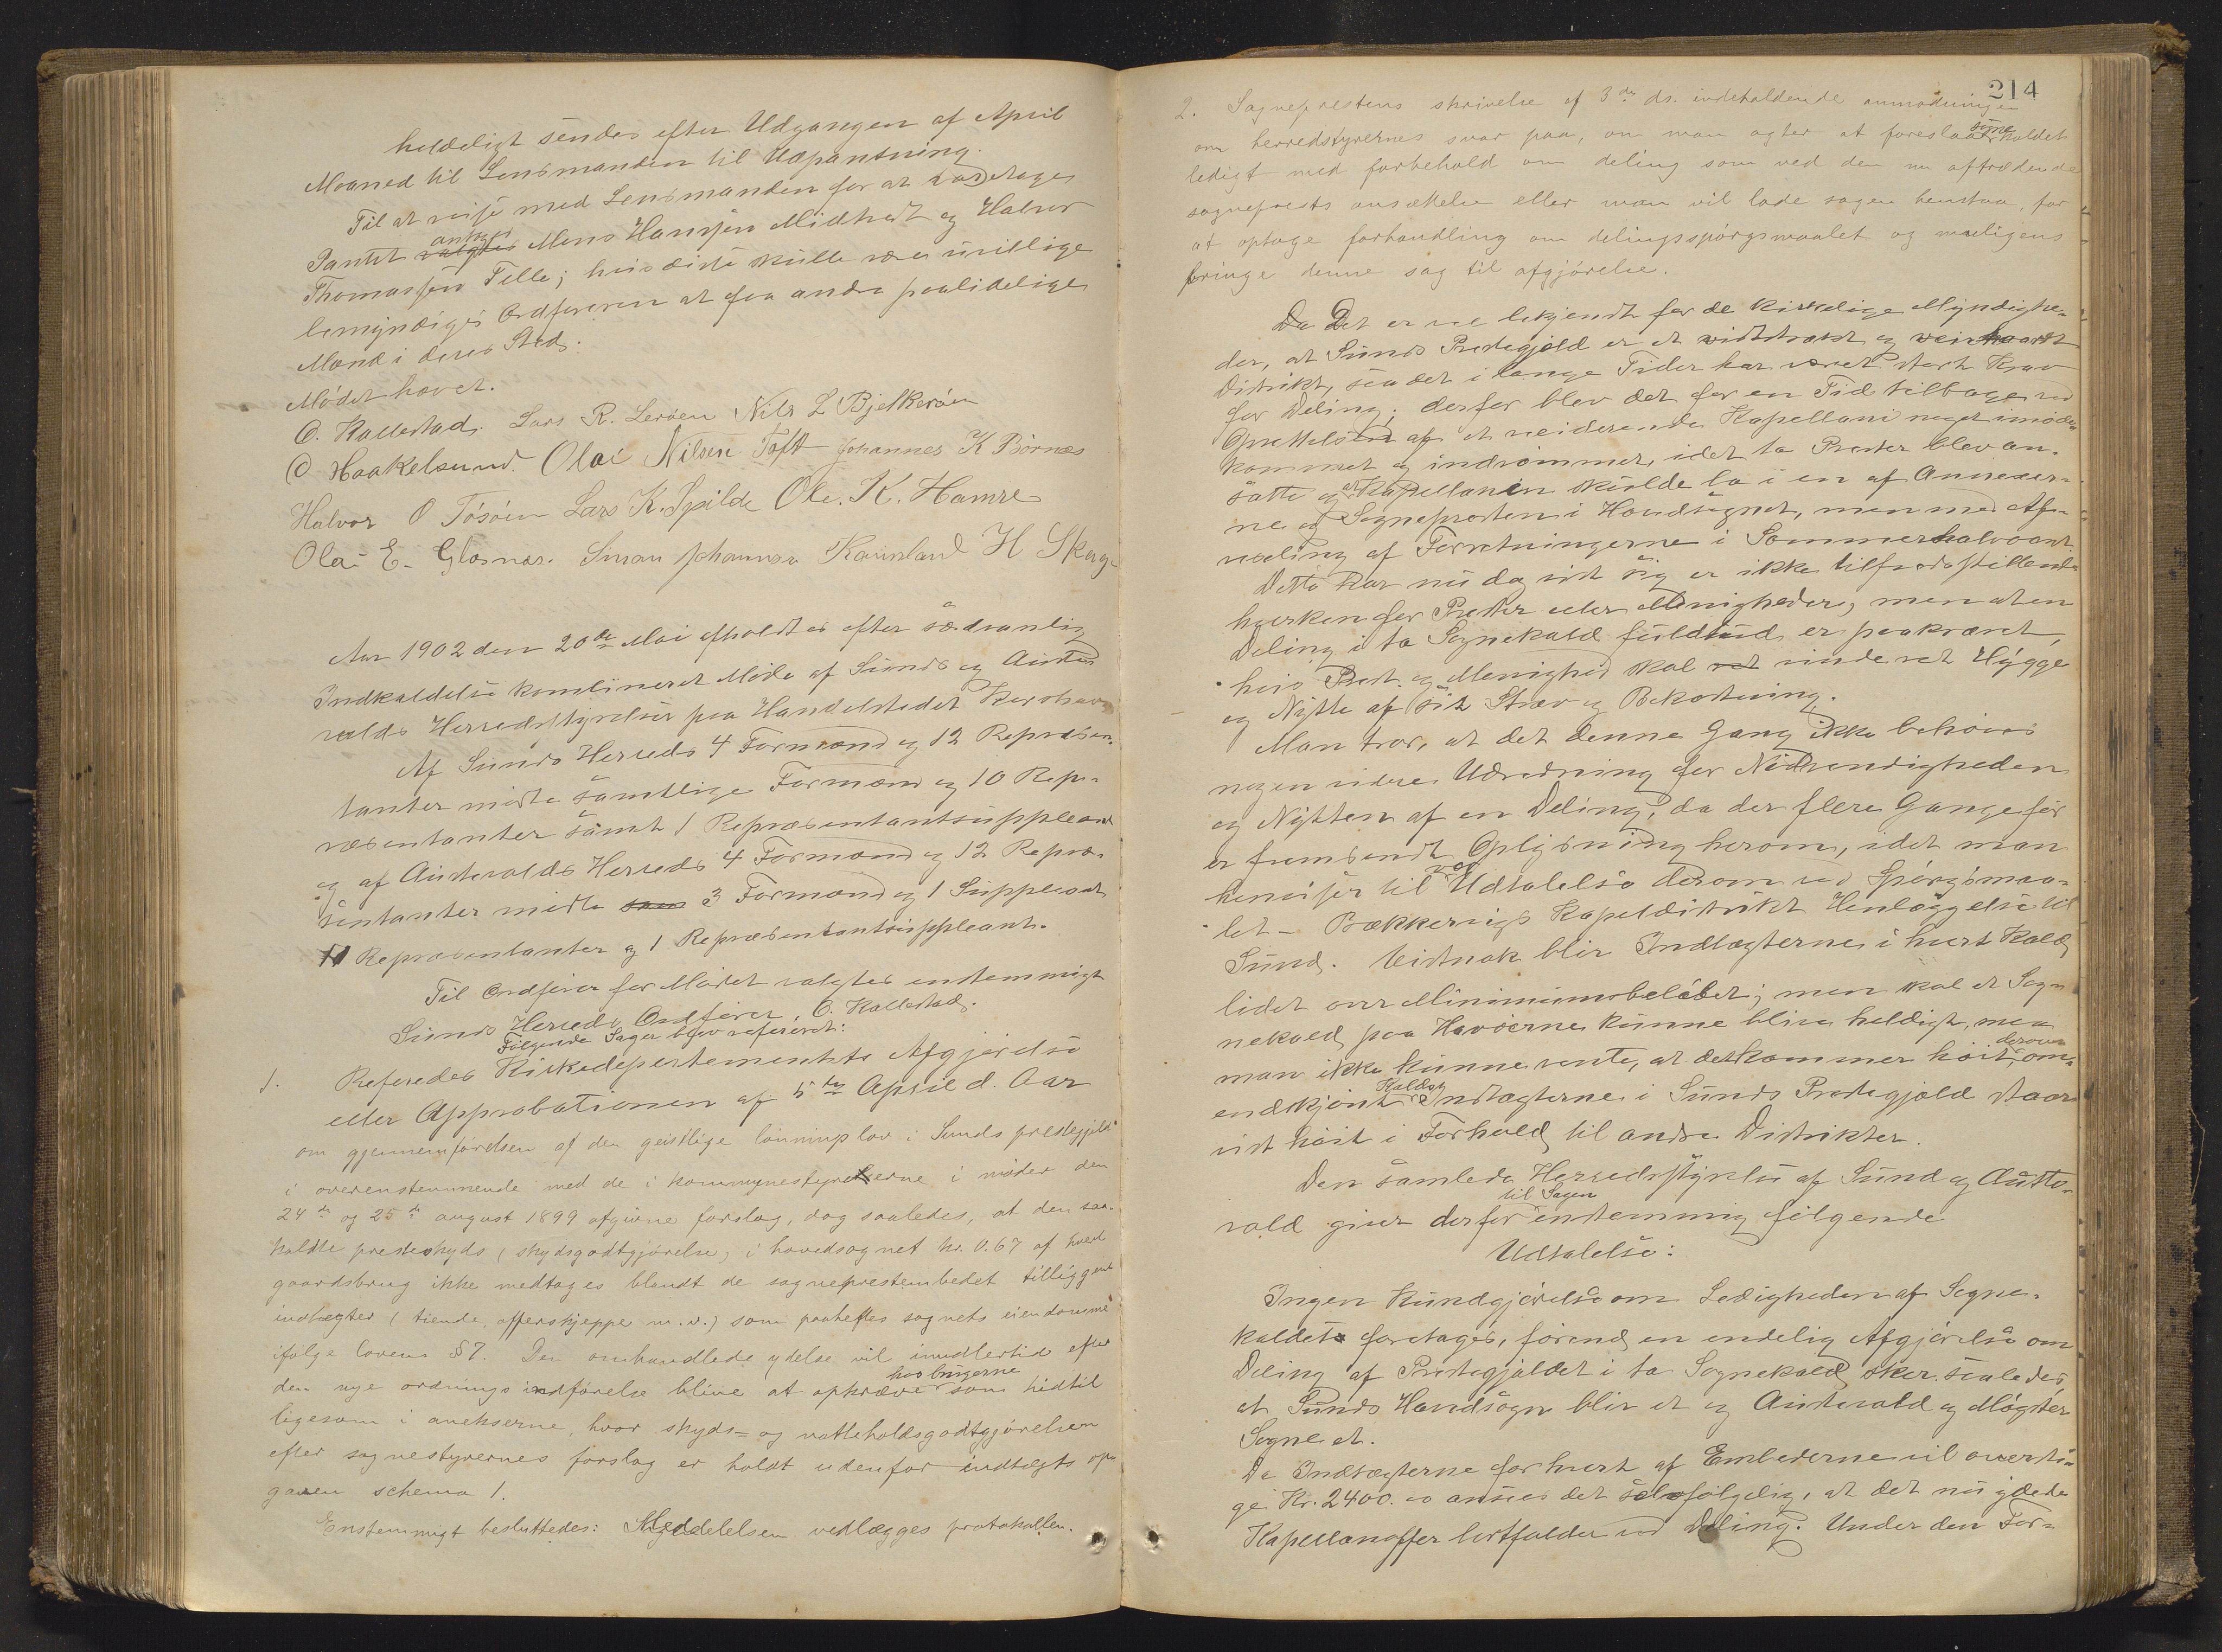 holdeligt sendes efter Udgangen af April
Maaned til Lensmanden til Udpantning.
Til at reise med Lensmanden for at
Pantet valgtes antages Mons Hansen Midtvedt og Halvor
Thomassen Telle; hvis disse skulle være uvillige
bemyndiges Ordføreren at faa andre paalidelige
Mænd i deres Sted.
Mødet hævet.
O. Kallestad. Lars R. Lerøen Nils L Bjelkerøen
O Haakelsund. Olai Nilsen Toft Johannes K Børnæs
Halvor O Tøsøen Lars K. Spilde Ole. K. Hamre
Olai E. Glæsnæs. Simon Johannesen H Skag
Aar 1902 den 20de Mai afholdtes efter sædvanlig
Indkaldelse kombineret Møde af Sunds og Auste
volds Herredsstyrelser paa Handelstedet
Af Sunds Herreds 4 Formænd og 12 Repræsen-
tanter mødte samtlige Formænd og 10 Rep-
ræsentanter samt 1 Repræsentantsuppleant
og af Austevolds Herreds 4 Formænd og 12 Repræ-
sentanter mødte 3 Formænd og 1 Suppleant
11 Repræsentanter og 1 Repræsentantsuppleant.
Til Ordfører for Mødet valgtes enstemmigt
Sunds Herreds Ordfører, O. Kallestad.
Følgende Sager blev refereret:
1. Referedes Kirkedepartementets Afgjørelse
eller Approbationen af 5te April d. Aar
om gjennemførelsen af den geistlige lønningslov i Sunds prestegjeld
i overenstemmende med de i kommunestyrelserne i møder den
24de og 25de august 1899 afgivne forslag, dog saaledes, at den saa-
kaldte presteskyds (skydsgodtgjørelse) i hovedsognet kr. 0.67 af hvert
gaardsbrug ikke medtages blandt de sogneprestembedet tilliggende
indtægter (tiende, offerskjeppe m.v.) som paaheftes sognets eiendomme
ifølge lovens § 7. Den omhandlede ydelse vil imidlertid efter
den nye ordnings indførelse blive at opkræve hos brugerne som hidtil
ligesom i anekserne, hvor skyds- og natteholdsgodtgjørelsen
efter sognestyrernes forslag er holdt udenfor indtægts op-
gaven schema 1.
Enstemmigt besluttedes: Meddelelsen vedlægges protokollen.
214
2. Sogneprestens skrivelse af 3de ds. indeholdende anmodningen
om herredstyrernes svar paa, om man agter at foreslaa sognekaldet
ledigt med forbehold om deling som ved den nu aftrædende
sogneprests ansættelse eller man vil lade sagen henstaa, for
at optage forhandling om delingsspørgsmaalet og muligens
bringe denne sag til afgjørelse.
Da Det er vel bekjendt for de kirkelige Myndighe-
der, at Sunds Prestegjeld er et vidtstrakt og veirhaardt
Distrikt, saa det i lange Tider har været sterk Krav
for Deling; derfor blev det for en Tid tilbage ved
Oprettelsen af et residerende Kapellani noget imøde-
kommet og indrømmet, idet to Prester blev an-
satte og at Kapellanen skulde bo i en af Annexer-
ne og Sognepresten i Hovedsognet, men med Af-
vexling af Forretningerne i Sommerhalvaaret.
Dette har nu dog vist sig er ikke tilfredsstillende
hverken for Prester eller Menigheder, men at en
Deling i to Sognekald fuldtud er paakrævet,
hvis Prest og Menighed skal ret vinde ret Hygge
og Nytte af sit Stræv og Bekostning.
Man tror, at det denne Gang ikke behøves
nogen videre Udredning for Nødvendigheden
og Nytten af en Deling, da der flere Gange før
er fremsendt Oplysning herom, idet man
henviser til vor Udtalelse derom ved Spørgsmaa-
let – Bækkervigs Kapeldistrikt Henlæggelse til
Sund. Vistnok blir Indtægterne i hvert Kald
lidet over Minimumsbeløbet; men skal et Sog-
nekald paa Havøerne kunne blive heldigt, maa
man ikke kunne vente, at det kommer høit derover om-
endskjønt Kalds Indtægterne i Sunds Prestegjeld staar
vist høit i Forhold til andre Distrikter.
Den samlede Herredsstyrelse af Sund og Auste-
vold giver derfor til Sagen enstemmig følgende
Udtalelse:
Ingen Kundgjørelse om Ledigheden af Sogne-
kaldet foretages, førend en endelig Afgjørelse om
Deling af Prestegjeldet i to Sognekald sker saaledes,
at Sunds Hovedsogn blir et og Austevold og Møgster
Sogne et.
Da Indtægterne for hvert af Embederne vil oversti-
ge Kr. 2400.00 ansees det selvfølgelig, at det nu ydede
Kapellanoffer bortfalder ved Deling. Under den For-